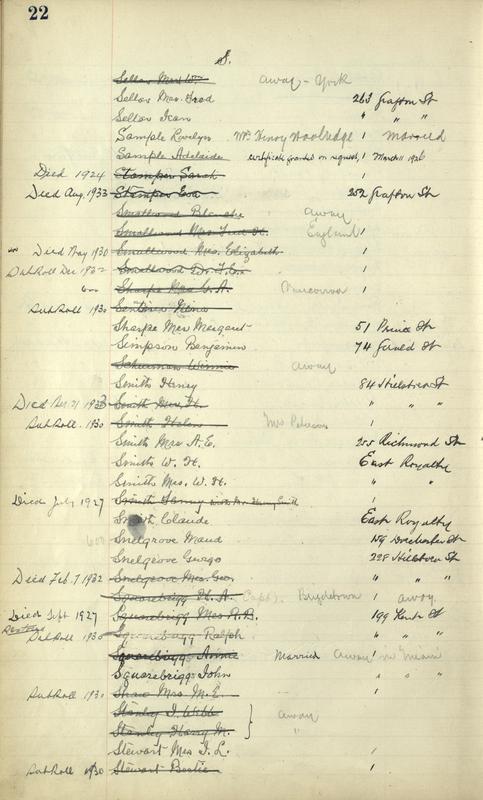 22
S.
Sellar Mrs W. away - York
Sellar Mrs. Fred 263 Grafton St
Sellar Jean " " "
Sample Roslyn Wm Henry Woolridge 1 Married
Sample Adelaide certificate granted on request, 1 March 11 1926
Died 1924 Stamper Sarah 1
Died Aug. 1933 Stamper Eva 252 Grafton St
Smallwood Blanche away
Smallwood Mrs Fred H. England 1
Died May 1930 Smallwood Mrs. Elizabeth 1
Dec 1932 Smallwood Dr. 1
Sharpe Mrs G. A. Vancouver 1
Roll 1930
Sharpe Mrs Margaret 51 Prince St
Simpson Benjamin 74 St
Schurman Winnie away
Smith Henry 84 Hillsboro St
Died 21 1933 Smith Mrs. H. " " "
Roll. 1930 Smith Helen Mrs 1
Smith Mrs A. E. 255 Richmond St
Smith W. H. East Royalty
Smith Mrs. W. H. " "
Died July 1927 Smith Fanny with Mrs Henry Smith 1
Smith Claude East Royalty
Snelgrove Maud 159 Dorchester St
Snelgrove George 228 Hillsboro St
Died Feb. 7 1932 Snelgrove Mrs. Geo. " " "
Squarebrigg H. A. Capt. Bridgetown 1 away
Died Sept 1927 Squarebrigg Mrs R. B. 199 Kent St
Roll 1930 Squarebrigg Ralph " " "
Squarebrigg Annie Married away
Squarebrigg John " " "
Roll 1930 Shaw Mrs M. E. 1
Stanley I. Webb } away
Stanley Harry M. "
Stewart Mrs J. L. 1
Roll 1930 Stewart Bertie 1